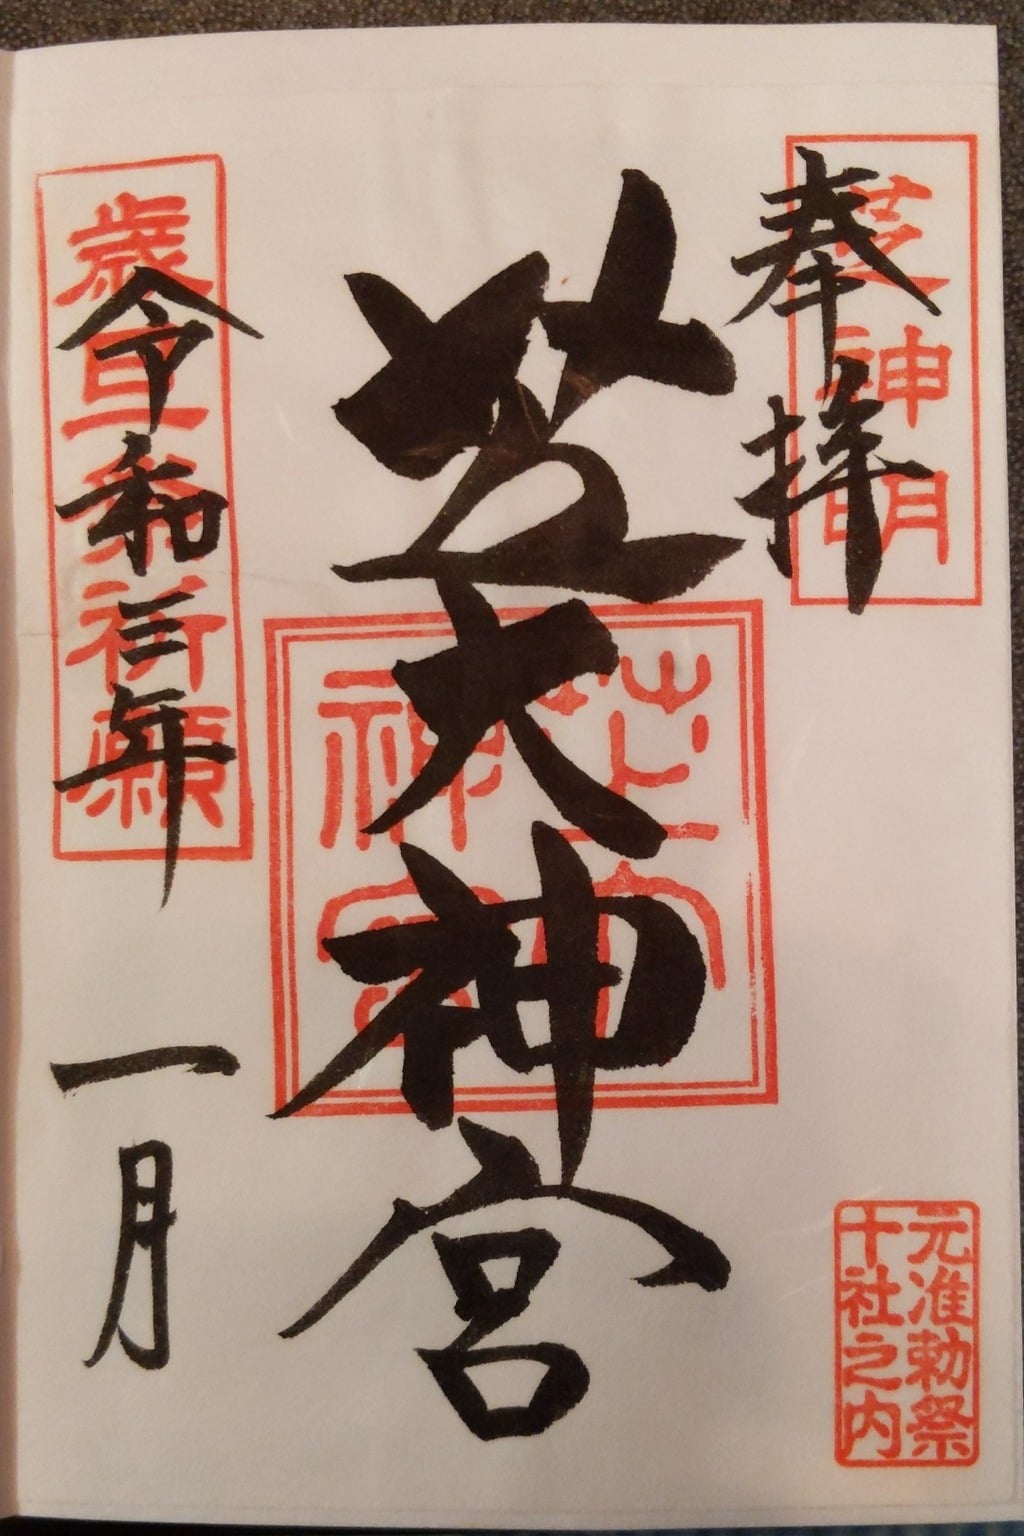 奉拝
芝神明
芝大神宮
芝大神宮
令和三年一月
歳旦祭祈願
元准勅祭
十社之内